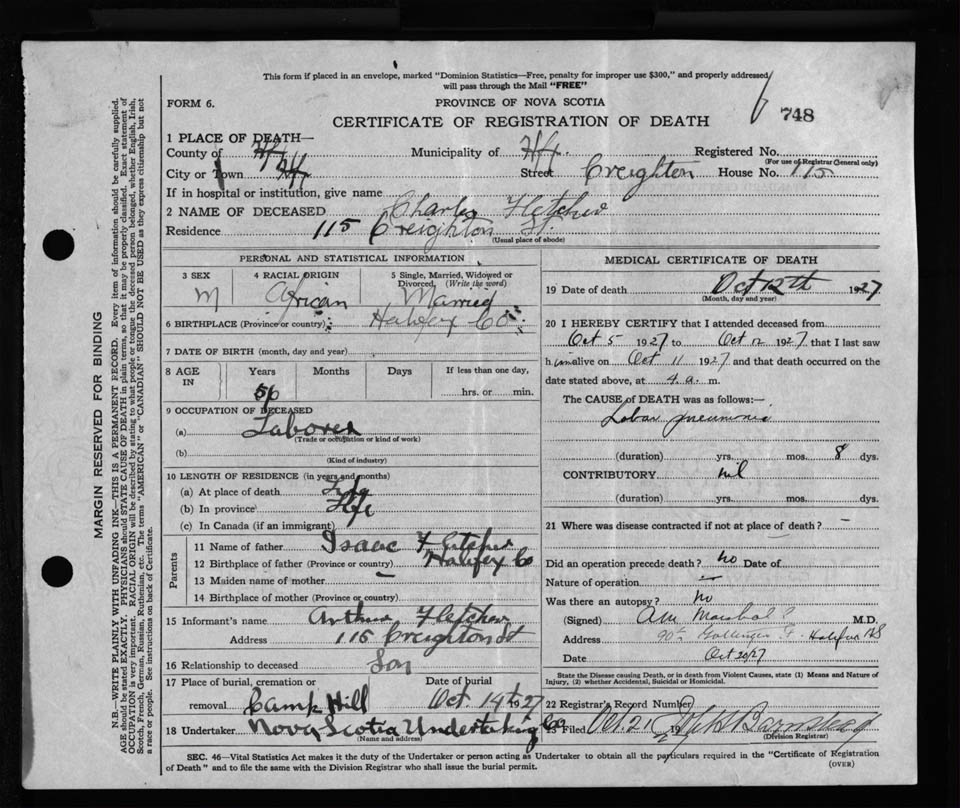 This form if placed in an envelope, marked "Dominion Statistics—Free, penalty for improper use $300," and properly addressed
will pass through the Mail "FREE"
FORM 6. PROVINCE OF NOVA SCOTIA
CERTIFICATE OF REGISTRATION OF DEATH 748
1 PLACE OF DEATH—
County of Hfx Municipality of Hfx. Registered No.
(For use of Registrar General only)
City or Town Hfx Street Creighton House No. 115
If in hospital or institution, give name
2 NAME OF DECEASED Charles Fletcher
Residence 115 Creighton St.
(Usual place of abode)
PERSONAL AND STATISTICAL INFORMATION
3 SEX 4 RACIAL ORIGIN 5 Single, Married, Widowed or
Divorced, (Write the word)
M African Married
6 BIRTHPLACE (Province or country) Halifax Co
7 DATE OF BIRTH (month, day and year)
8 AGE IN Years Months Days If less than one day,
56 hrs. or min.
9 OCCUPATION OF DECEASED
(a) Laborer
(Trade or occupation or kind of work)
(b)
(Kind of industry)
10 LENGTH OF RESIDENCE (in years and months)
(a) At place of death Life
(b) In province Life
(c) In Canada (if an immigrant)
Parents
11 Name of father Isaac Fletcher
12 Birthplace of father (Province or country) Halifax Co
13 Maiden name of mother –
14 Birthplace of mother (Province or country)
15 Informant's name Arthur Fletcher
Address 115 Creighton St
16 Relationship to deceased Son
17 Place of burial, cremation or Date of burial
removal Camp Hill Oct. 14th 1927
18 Undertaker Nova Scotia Undertaking Co
(Name and address)
MEDICAL CERTIFICATE OF DEATH
19 Date of death Oct 12th 1927
(Month, day and year)
20 I HEREBY CERTIFY that I attended deceased from
Oct 5 1927 to Oct 12 1927 that I last saw
him alive on Oct 11 1927 and that death occurred on the
date stated above, at 4 a. m.
The CAUSE of DEATH was as follows:—
Lobar pneumonia
(duration) yrs. mos. 8 dys.
CONTRIBUTORY nil
(duration) yrs. mos. dys.
21 Where was disease contracted if not at place of death? –
Did an operation precede death? no Date of
Nature of operation –
Was there an autopsy? no
(Signed) M.D.
Address Halifax NS
Date Oct 20/27
State the Disease causing Death, or in death from Violent Causes, state (1) Means and Nature of
Injury, (2) whether Accidental, Suicidal or Homicidal.
22 Registrar's Record Number
23 Filed Oct 21 Barnstead
(Division Registrar)
SEC. 46—Vital Statistics Act makes it the duty of the Undertaker or person acting as Undertaker to obtain all the particulars required in the "Certificate of Registration
of Death" and to file the same with the Division Registrar who shall issue the burial permit. (OVER)
MARGIN RESERVED FOR BINDING
N.B.—WRITE PLAINLY WITH UNFADING INK—THIS IS A PERMANENT RECORD. Every item of information should be carefully supplied.
AGE should be stated EXACTLY. PHYSICIANS should STATE CAUSE OF DEATH in plain terms, so that it may be properly classified. Exact statement of
OCCUPATION is very important. RACIAL ORIGIN will be described by stating to what people or tongue the deceased person belonged, whether English, Irish,
Scotch, French, German, Russian, Ruthenian, etc. The terms "AMERICAN" or "CANADIAN" SHOULD NOT BE USED as they express citizenship but not
a race or people. See instructions on back of Certificate.